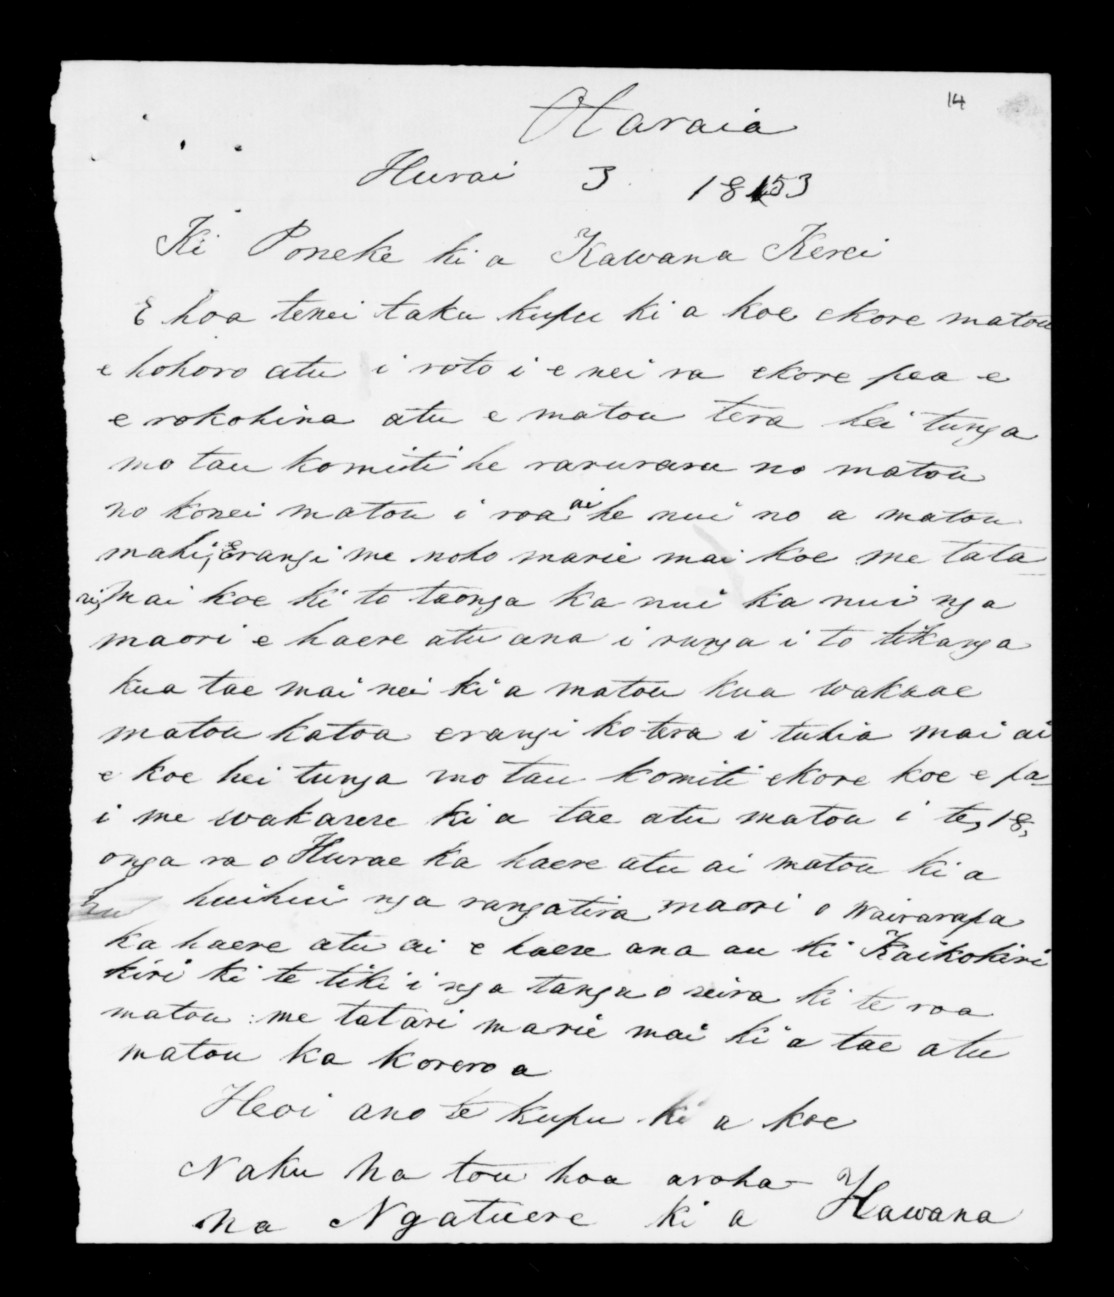 14
Otaraia
Hurai 3 1853
Ki Poneke ki a Kawana Kerei
E hoa tenei taku kupu ki a koe ekore matou
e hohoro atu i roto i e nei ra ekore pea e
e rokohina atu e matou tera hei tunga
mo tau komiti he raruraru no matou
no konei matou i roa ai he nui no a matou
mahi, Erangi me noho marie mai koe me tata
ri, mai koe ki to taonga ka nui ka nui nga
maori e haere atu ana i runga i to tikanga
kua tae mai nei ki a matou kua wakaae
matou katoa erangi ko tera i tuhia mai ai
e koe hei tunga mo tau komiti ekore koe e pa
i me wakarere ki a tae atu matou i te, 18,
onga ra o Hurae ka haere atu ai matou ki a
huihui nga rangatira maori o Wairarapa
ka haere atu ai e haere ana au ki Kaikokiri
kiri ki te tiki i nga tangu o reira ki te roa
matou : me tatari marie mai ki a tae atu
matou ka korero a
Heoi ano te kupu ki a koe
Naku na tou hoa aroha
na Ngatuere ki a Kawana